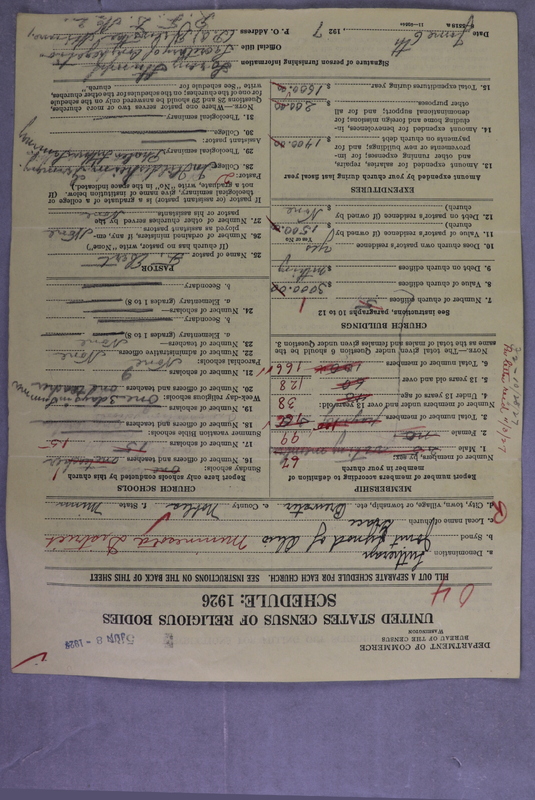 DEPARTMENT OF COMMERCE
BUREAU OF THE CENSUS
WASHINGTON
UNITED STATES CENSUS OF RELIGIOUS BODIES
SCHEDULE: 1926
FILL OUT A SEPARATE SCHEDULE FOR EACH CHURCH. SEE INSTRUCTIONS ON THE BACK OF THIS SHEET
a. Denomination Lutheran
b. Synod Joint Synod of Ohio Minnesota District
c. Local name of church Grace
d. City, town, village, or township, etc. Brewster e. County Nobles f. State Minn
MEMBERSHIP
Report number of members according to definition of member in your church
1. Male 67
2. Female 99
3. Total number of members 166
4. Under 13 years of age 38
5. 13 years old and over 128
6. Total number of members 166
NOTE.—The total given under question 6 should be the same as the total of males and females given under question 3.
CHURCH BUILDINGS
See instructions, paragraphs 10 to 12
7. Number of church edifices 1
8. Value of church edifices $ 5000.00
9. Debt on church edifices $ nothing
10. Does church own pastor's residence? yes
Yes or No
11. Value of pastor's residence (if owned by church) $ 1500.00
12. Debt on pastor's residence (if owned by church) $ None
EXPENDITURES
Amount expended during last fiscal year
13. Amount expended for salaries, repairs, and other running expenses; for improvements or new buildings; and for payments on church debt $ 1400.00
14. Amount expended for benevolences, including home and foreign missions; for denominational support; and for all other purposes $ 200.00
15. Total expenditures during year $ 1600.00
CHURCH SCHOOLS
Report here only schools conducted by this church
Sunday schools: one
16. Number of officers and teachers
17. Number of scholars 15
Summer vacation Bible schools:
18. Number of officers and teachers
19. Number of scholars
Week-day religious schools: One 3 days in summer
20. Number of officers and teachers one teacher
21. Number of scholars 9
Parochial schools: None
22. Number of administrative officers None
23. Number of teachers— None
a. Elementary (grades 1 to 8)
b. Secondary
24. Number of scholars—
a. Elementary (grades 1 to 8)
b. Secondary
PASTOR
25. Name of pastor
(If church has no pastor, write "None")
26. Number of ordained ministers, if any, employed as assistant pastors None
27. Number of other churches served by the pastor or his assistants None
If pastor or assistant pastor is a graduate of a college or theological seminary, give name of institution below. (If not a graduate, write "No" in the space indicated.)
Pastor:
28. College
29. Theological Seminary
Assistant pastor:
30. College
31. Theological seminary
NOTE.—Where one pastor serves two or more churches, questions 25 and 29 should be answered only on the schedule for one of the churches; on the schedules for the other churches, write "See schedule for church."
Signature of person furnishing information
Official title
P. O. Address
Date June 6th, 1927